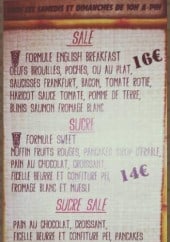 SAMEDIS ET DIMANCHES DE 10H À
SALÉ
FORMULE ENGLISH BREAKFAST 16€
OEUFS BROUILLES, POCHES, OU AU PLAT,
SAUCISSES FRANKFURT, BACON, TOMATE ROTIE,
HARICOT SAUCE TOMATE, POMME DE TERRE,
BLINIS SAUMON FROMAGE BLANC
SUCRÉ
FORMULE SWEET
MUFFIN FRUITS ROUGES, PANCAKES SIROP D'ERABLE,
PAIN AU CHOCOLAT, CROISSANT,
FICELLE BEURRE ET CONFITURE PEL 14€
FROMAGE BLANC ET MUESLI
SUCRE SALE
PAIN AU CHOCOLAT, CROISSANT,
FICELLE BEURRE ET CONFITURE PEL, PANCAKES